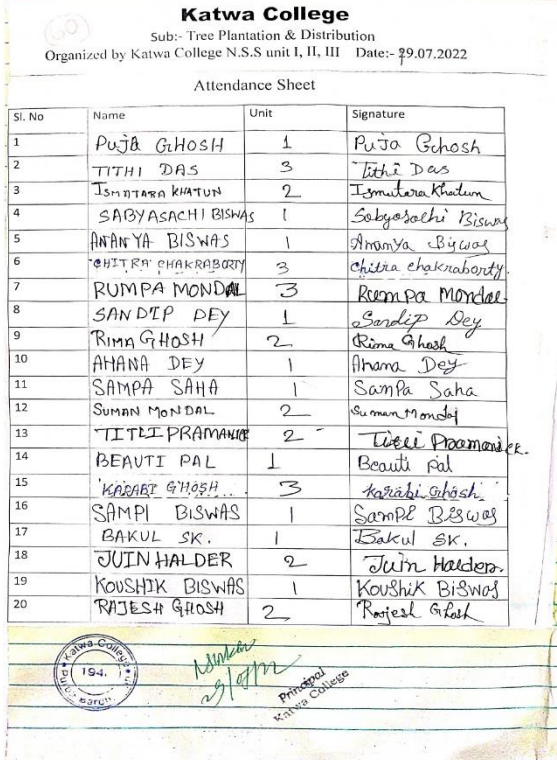 60
Katwa College
Sub:- Tree Plantation & Distribution
Organized by Katwa College N.S.S unit I, II, III Date:- 29.07.2022
Attendance Sheet
Sl. No Name Unit Signature
1 PUJA GHOSH 1 Puja Ghosh
2 TITHI DAS 3 Tithi Das
3 ISMATARA KHATUN 2 Ismatara Khatun
4 SABYASACHI BISWAS 1 Sabyasachi Biswas
5 ANANYA BISWAS 1 Ananya Biswas
6 CHITRA CHAKRABORTY 3 Chitra Chakraborty.
7 RUMPA MONDAL 3 Rumpa Mondal
8 SANDIP DEY 1 Sandip Dey
9 RIMA GHOSH 2 Rima Ghosh
10 AHANA DEY 1 Ahana Dey
11 SAMPA SAHA 1 Sampa Saha
12 SUMAN MONDAL 2 Suman Mondal
13 TITLI PRAMANICK 2 Titli Pramanick.
14 BEAUTI PAL 1 Beauti pal
15 KARABI GHOSH 3 Karabi Ghosh
16 SAMPI BISWAS 1 Sampi Biswas
17 BAKUL SK. 1 Bakul SK.
18 JUIN HALDER 2 Juin Halder.
19 KOUSHIK BISWAS 1 Koushik Biswas
20 RAJESH GHOSH 2 Rajesh Ghosh
Katwa College
194.
29/07/22
Principal
Katwa College